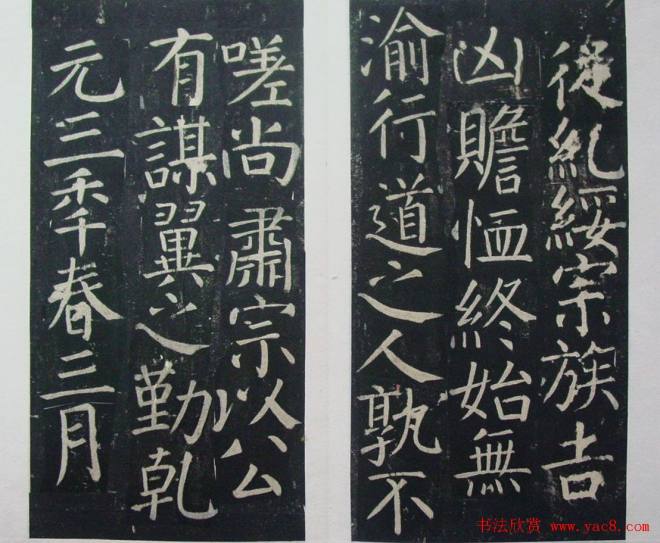 從糺綏宗族吉
凶贍恤終始無
渝行道之人孰不
嗟尚肅宗以公
有謀翼之勤乾
元三年春三月
书法欣赏 www.yac8.com